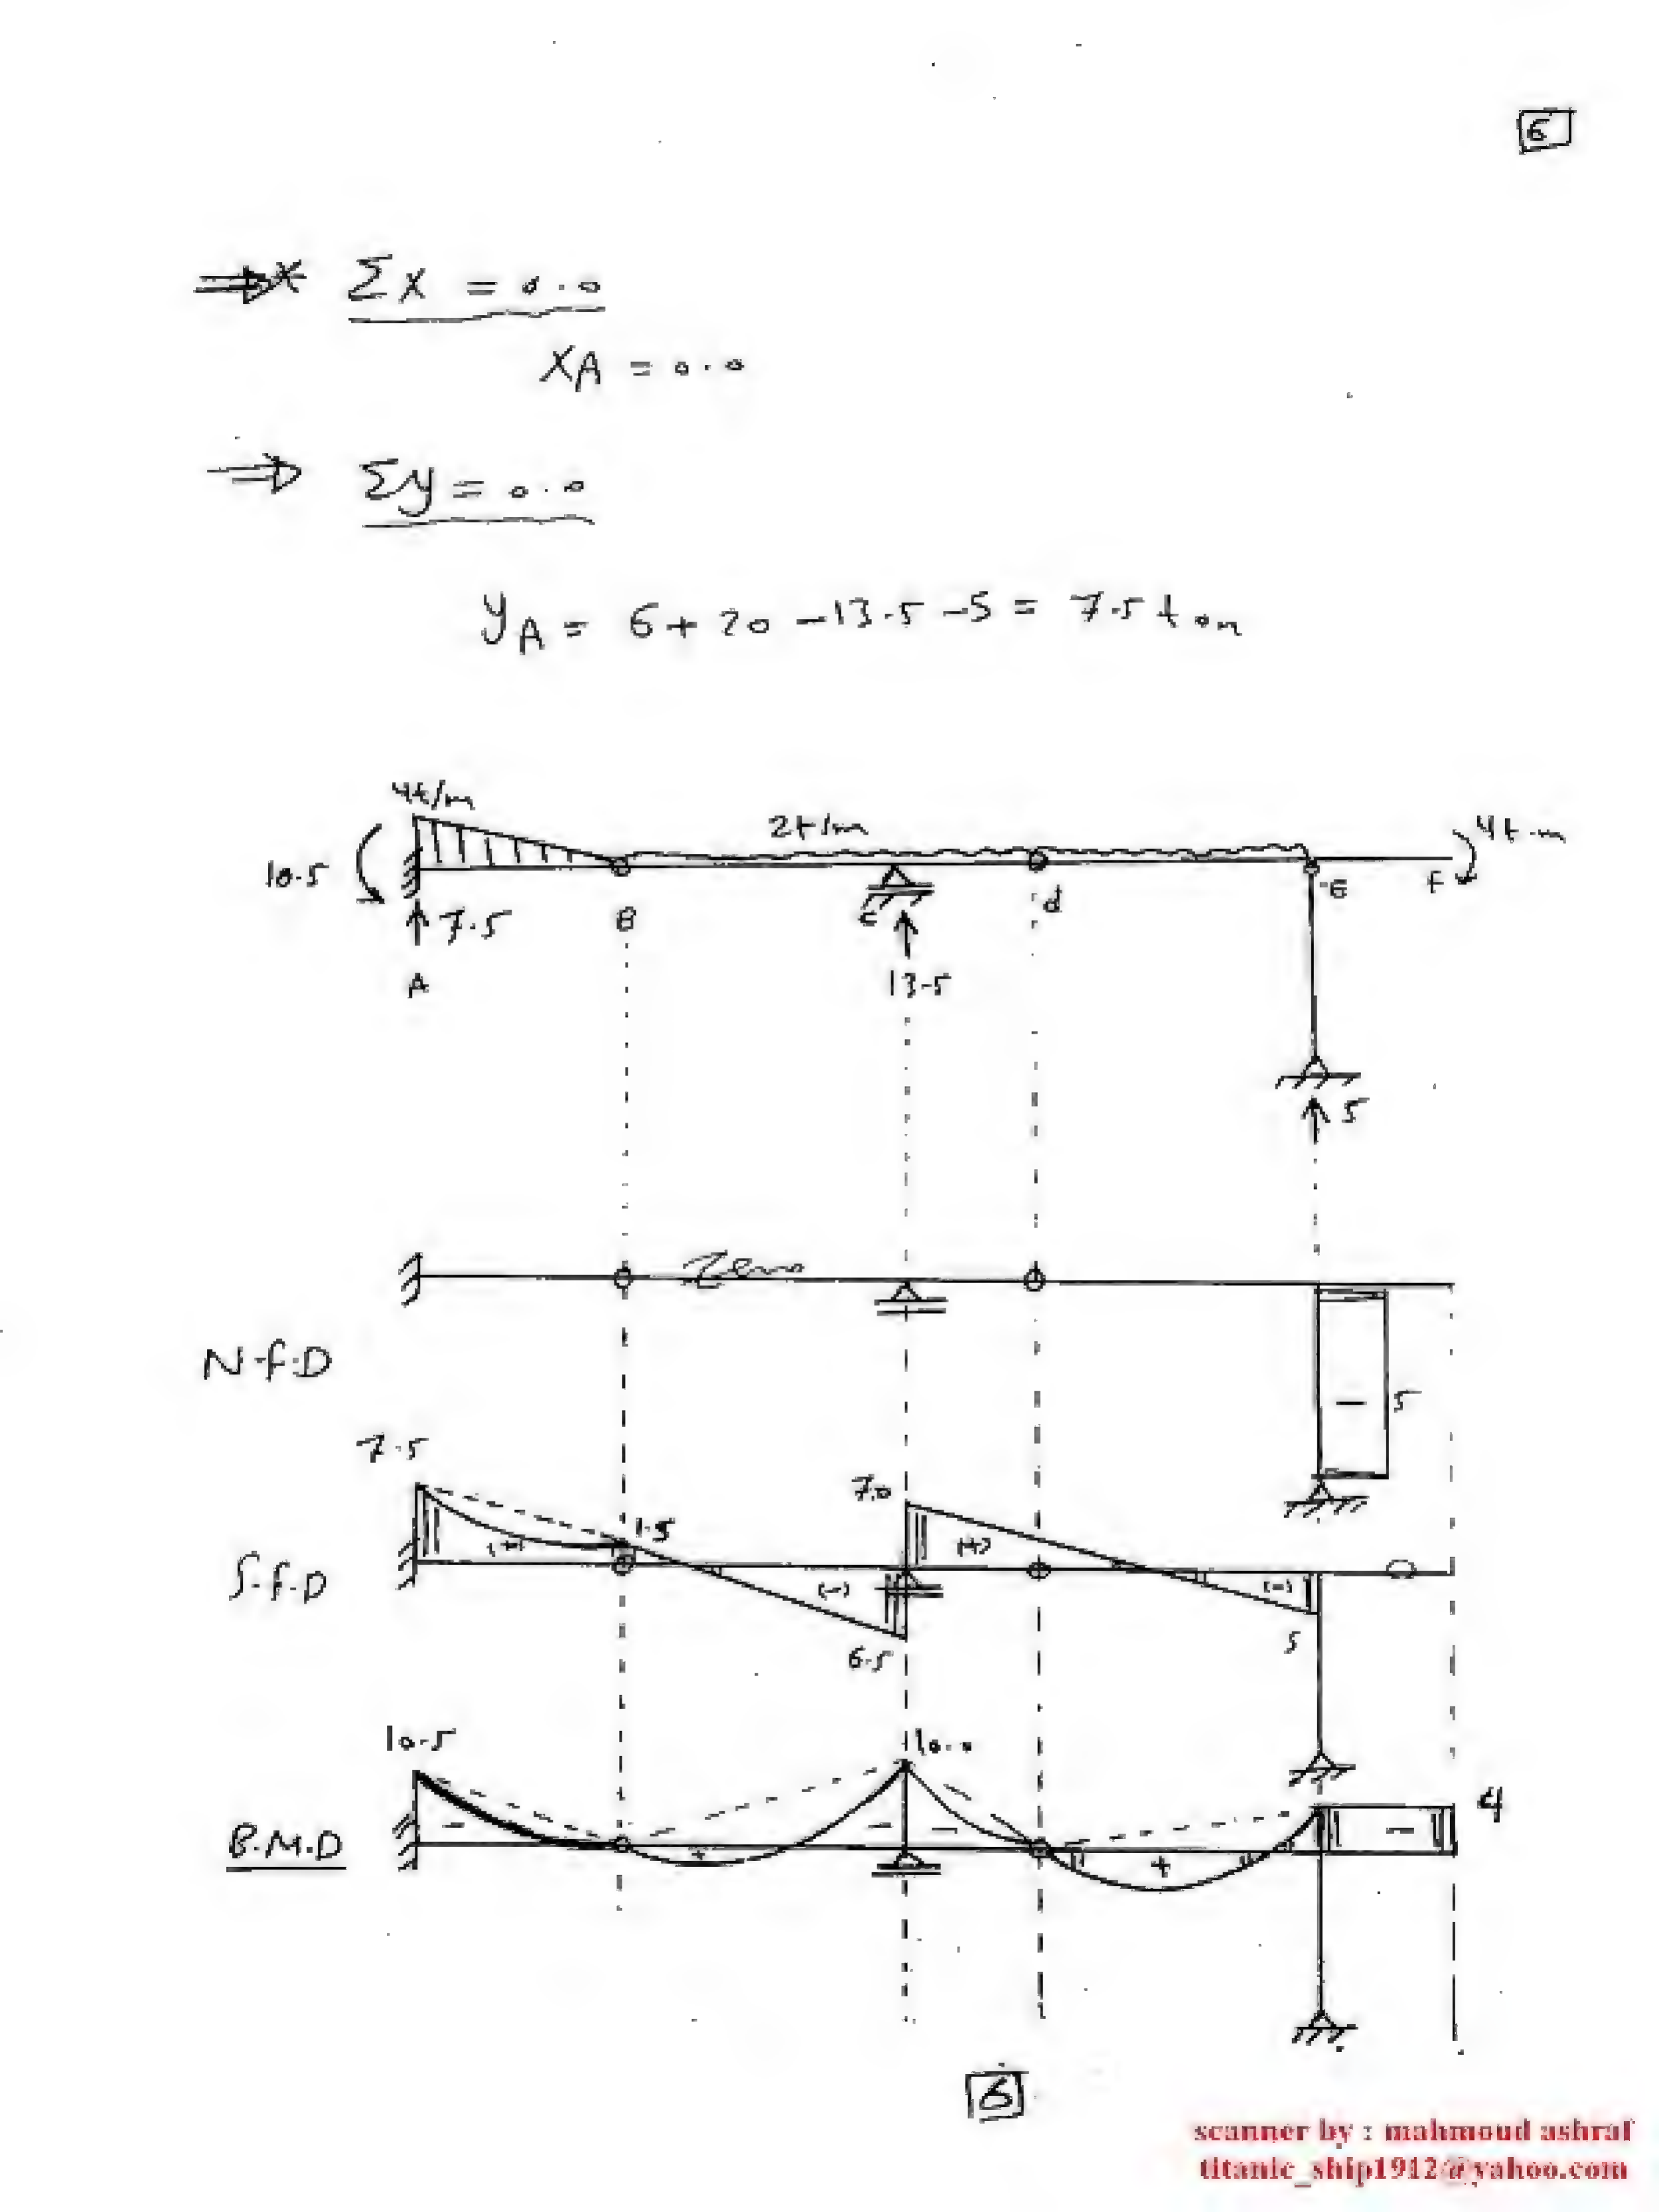 6
⇒* ΣX = 0.0
XA = 0.0
⇒ Σy = 0.0
yA = 6 + 20 - 13.5 - 5 = 7.5 ton
4t/m
2t/m
4t.m
10.5
7.5
A
B
C
13.5
d
E
F
5
Zero
N.F.D
5
7.5
1.5
7.0
(+)
(+)
(-)
(-)
S.F.D
6.5
5
10.5
10.0
4
B.M.D
-
+
-
+
-
6
scanner by : mahmoud ashraf
titanic_ship1912@yahoo.com